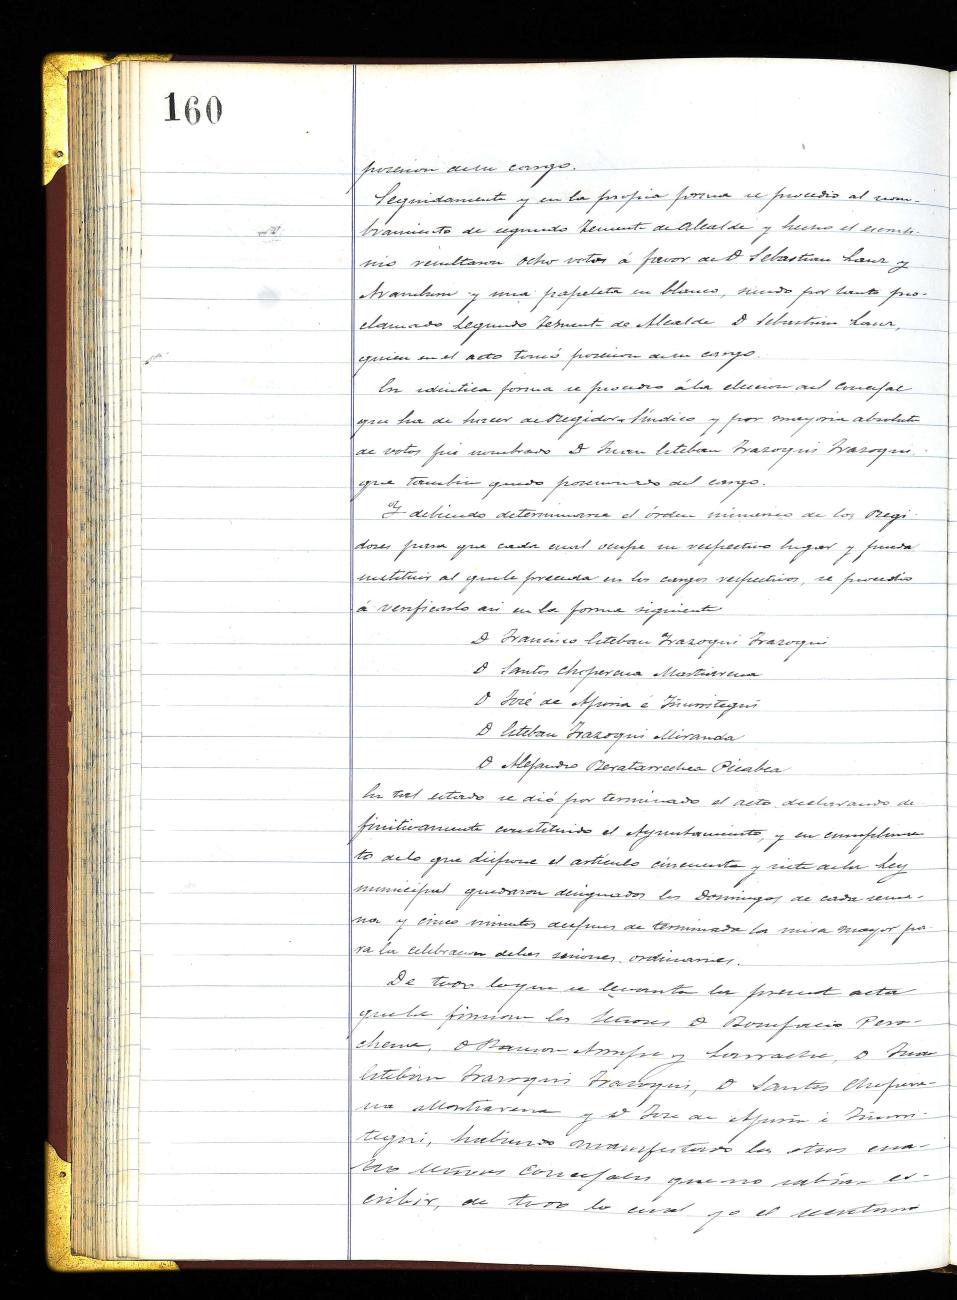 160
posesion de su cargo.
Seguidamente y en la propia forma se procedió al nom-
bramiento de segundo Teniente de Alcalde y hecho el escruti-
nio resultaron ocho votos á favor de D Sebastian Lanz y
Aramburu y una papeleta en blanco, siendo por tanto pro-
clamado Segundo Teniente de Alcalde D Sebastian Lanz,
quien en el acto tomó posesion de su cargo.
En identica forma se procedió á la eleccion del Concejal
que ha de hacer de Regidor Síndico y por mayoria absoluta
de votos fué nombrado D Juan Esteban Irazoqui Irazoqui
que tambien quedó posesionado del cargo.
Y debiendo determinarse el órden númerico de los Regi-
dores para que cada cual ocupe su respectivo lugar y pueda
sustituir al que le preceda en los cargos respectivos, se procedió
á verificarlo asi en la forma siguiente
D Francisco Esteban Irazoqui Irazoqui
D Santos Choperena Martiarena
D José de Apiria é Iñurritegui
D Esteban Irazoqui Miranda
D Alejandro Beratarrechea Picabea
En tal estado se dió por terminado el acto declarando de-
finitivamente constituido el Ayuntamiento, y en cumplimien
to de lo que dispone el artículo cincuenta y siete de la Ley
municipal quedaron designados los Domingos de cada sema-
na y cinco minutos despues de terminada la misa mayor pa-
ra la celebracion de las sesiones ordinarias.
De todo lo que se levanta la presente acta
que la firman los Señores D Bonifacio Pero-
chena, D Ramon y Larrache, D Juan
Esteban Irazoqui Irazoqui, D Santos Chopere-
na Martiarena y D José de Apiria é Iñurri-
tegui, habiendo manifestado los otros cua-
tro señores Concejales que no sabian es-
cribir, de todo lo cual yo el secretario